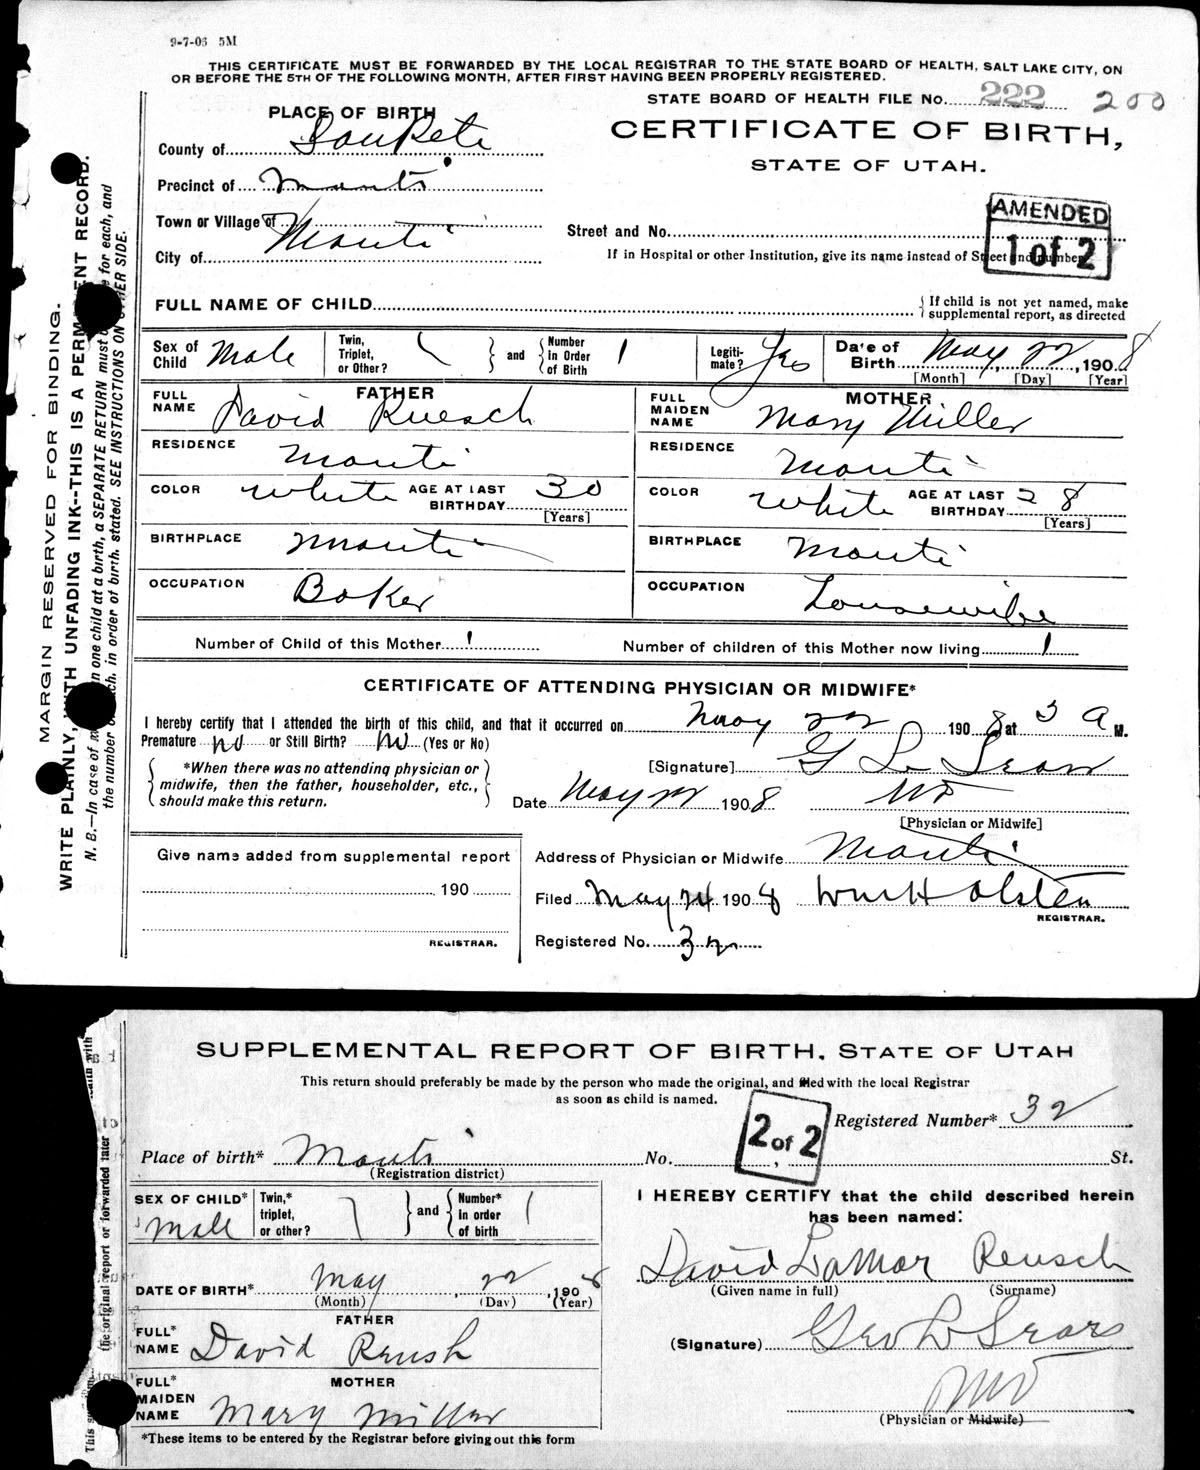 9-7-06 5M
THIS CERTIFICATE MUST BE FORWARDED BY THE LOCAL REGISTRAR TO THE STATE BOARD OF HEALTH, SALT LAKE CITY, ON
OR BEFORE THE 5TH OF THE FOLLOWING MONTH, AFTER FIRST HAVING BEEN PROPERLY REGISTERED.
STATE BOARD OF HEALTH FILE No. 222 200
PLACE OF BIRTH
CERTIFICATE OF BIRTH,
STATE OF UTAH.
County of SanPete
Precinct of Manti
Town or Village of
City of Manti
Street and No.
If in Hospital or other Institution, give its name instead of Street and number
AMENDED
1 of 2
FULL NAME OF CHILD
If child is not yet named, make
supplemental report, as directed
Sex of Child Male
Twin, Triplet, or Other? and Number in Order of Birth 1
Legitimate? Yes
Date of Birth May, 22, 1908
[Month] [Day] [Year]
FATHER
FULL NAME David Ruesch
MOTHER
FULL MAIDEN NAME Mary Miller
RESIDENCE Manti
RESIDENCE Manti
COLOR White AGE AT LAST BIRTHDAY 30
[Years]
COLOR White AGE AT LAST BIRTHDAY 28
[Years]
BIRTHPLACE Manti
BIRTHPLACE Manti
OCCUPATION Baker
OCCUPATION Housewife
Number of Child of this Mother 1
Number of children of this Mother now living 1
CERTIFICATE OF ATTENDING PHYSICIAN OR MIDWIFE*
I hereby certify that I attended the birth of this child, and that it occurred on May 22 1908 at 3 A M.
Premature no or Still Birth? no (Yes or No)
*When there was no attending physician or
midwife, then the father, householder, etc.,
should make this return.
[Signature] G L Sears
Date May 22 1908 MD
[Physician or Midwife]
Give name added from supplemental report
190
REGISTRAR.
Address of Physician or Midwife Manti
Filed May 24 1908 Wm H Olsten
REGISTRAR.
Registered No. 32
MARGIN RESERVED FOR BINDING.
WRITE PLAINLY, WITH UNFADING INK--THIS IS A PERMANENT RECORD.
N. B.—In case of more than one child at a birth, a SEPARATE RETURN must be made for each, and
the number of each, in order of birth, stated. SEE INSTRUCTIONS ON OTHER SIDE.
SUPPLEMENTAL REPORT OF BIRTH, STATE OF UTAH
This return should preferably be made by the person who made the original, and filed with the local Registrar
as soon as child is named.
2 of 2
Registered Number* 32
Place of birth* Manti No. St.
(Registration district)
SEX OF CHILD* Male
Twin,* triplet, or other? and Number* in order of birth 1
I HEREBY CERTIFY that the child described herein
has been named:
David LaMar Reusch
(Given name in full) (Surname)
DATE OF BIRTH* May, 22, 1908
(Month) (Day) (Year)
FATHER
FULL* NAME David Reush
(Signature) Geo L Sears
MOTHER
FULL* MAIDEN NAME Mary Miller
MD
(Physician or Midwife)
*These items to be entered by the Registrar before giving out this form
the original report or forwarded later